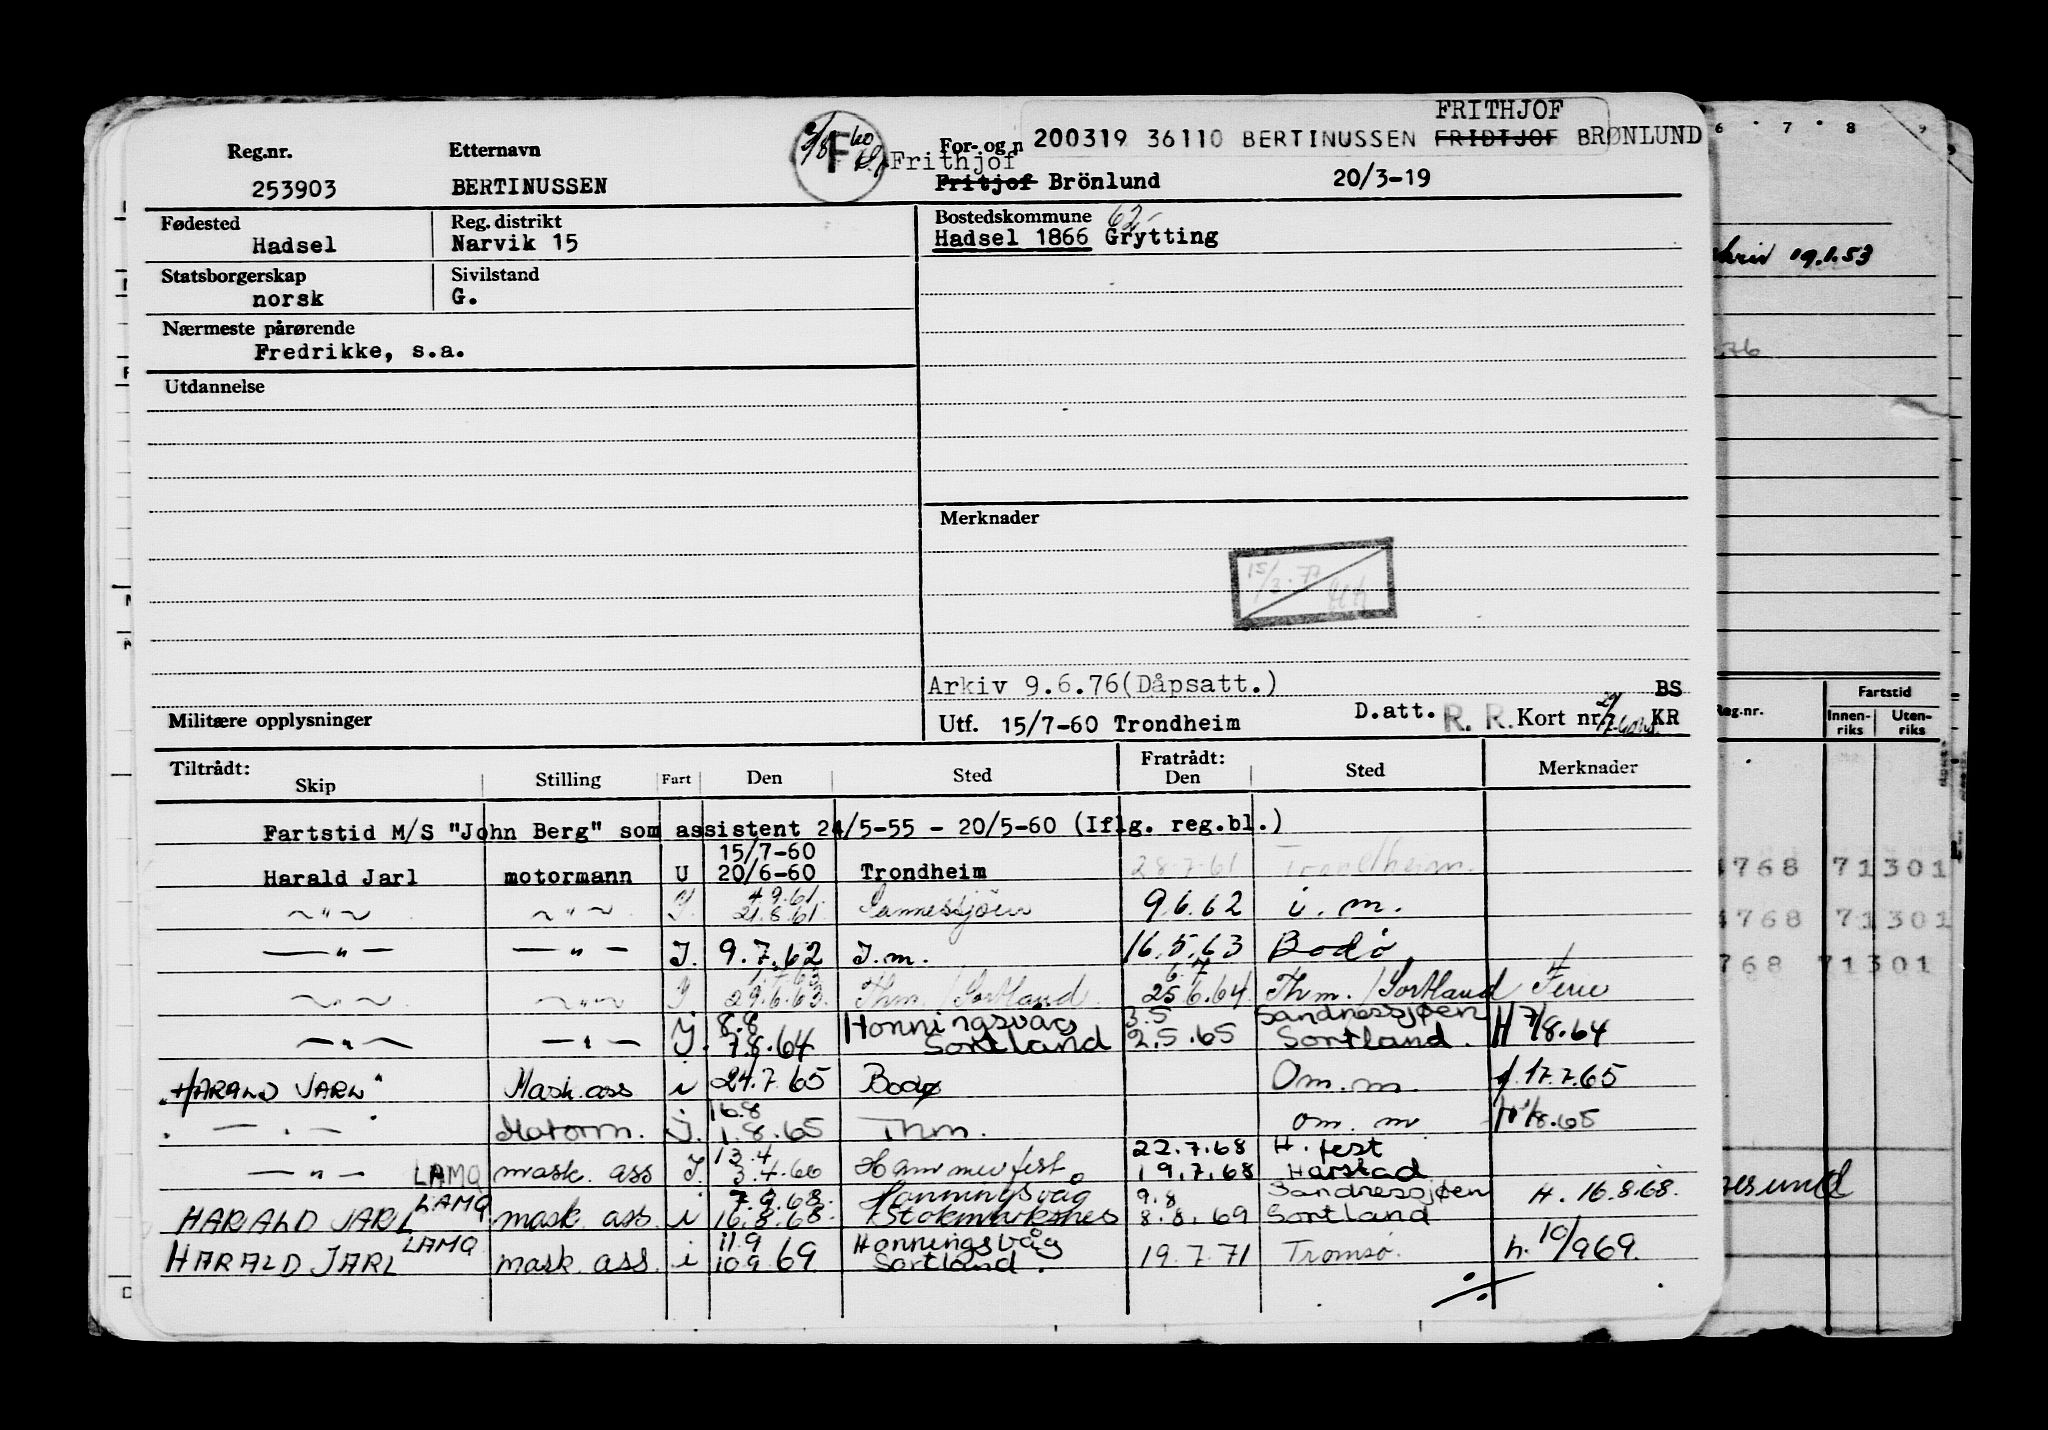 FRITHJOF
200319 36110 BERTINUSSEN FRIDTJOF BRØNLUND
Reg.nr. Etternavn F For- og n
Frithjof
253903 BERTINUSSEN Fritjof Brönlund 20/3-19
Fødested Reg. distrikt Bostedskommune 62-
Hadsel Narvik 15 Hadsel 1866 Grytting
Statsborgerskap Sivilstand
norsk G.
Nærmeste pårørende
Fredrikke, s.a.
Utdannelse
Merknader
15/3-77
Arkiv 9.6.76(Dåpsatt.) BS
Militære opplysninger Utf. 15/7-60 Trondheim D.att. R. R. Kort nr. KR
Tiltrådt: Fratrådt:
Skip Stilling Fart Den Sted Den Sted Merknader
Fartstid M/S "John Berg" som assistent 24/5-55 - 20/5-60 (Iflg. reg.bl.)
15/7-60
Harald Jarl motormann U 20/6-60 Trondheim 28.7.61 Trondheim.
4.9.61.
~"~ ~"~ I. 21.8.61. Sannesjöen 9.6.62 i. m.
—"— —"— I. 9.7.62 I.m. 16.5.63 Bodö
1.7.63 6.7
~"~ ~"~ I 29.6.63. Thm./Sortland. 25.6.64. Thm./Sortland Ferie
8.8 Honningsvåg 3.5 Sandnessjøen
—"— —"— I. 7.8.64 Sortland 2.5.65 Sortland. H 7/8.64
"HARALD JARL" Mask.ass i 24.7.65 Bodø Om.m. f.17.7.65
16.8
— " — Motorm. I. 1.8.65 Thm. om. m. H 1/8.65
13.4 22.7.68 H. fest
—"— LAMQ mask. ass I. 3.4.66 Hammerfest 19.7.68 Harstad
LAMQ 7.9.68. Honningsvåg 9.8 Sandnessjøen
HARALD JARL mask. ass. i 16.8.68. Stokmarksnes 8.8.69 Sortland H. 16.8.68.
LAMQ 11.9 Honningsvåg
HARALD JARL mask. ass. i 10.9.69. Sortland. 19.7.71 Tromsø. h. 10/969.
6 7 8 9
19.1.53
76
Reg.nr. Fartstid
Innen-riks Uten-riks
4768 71301
4768 71301
768 71301